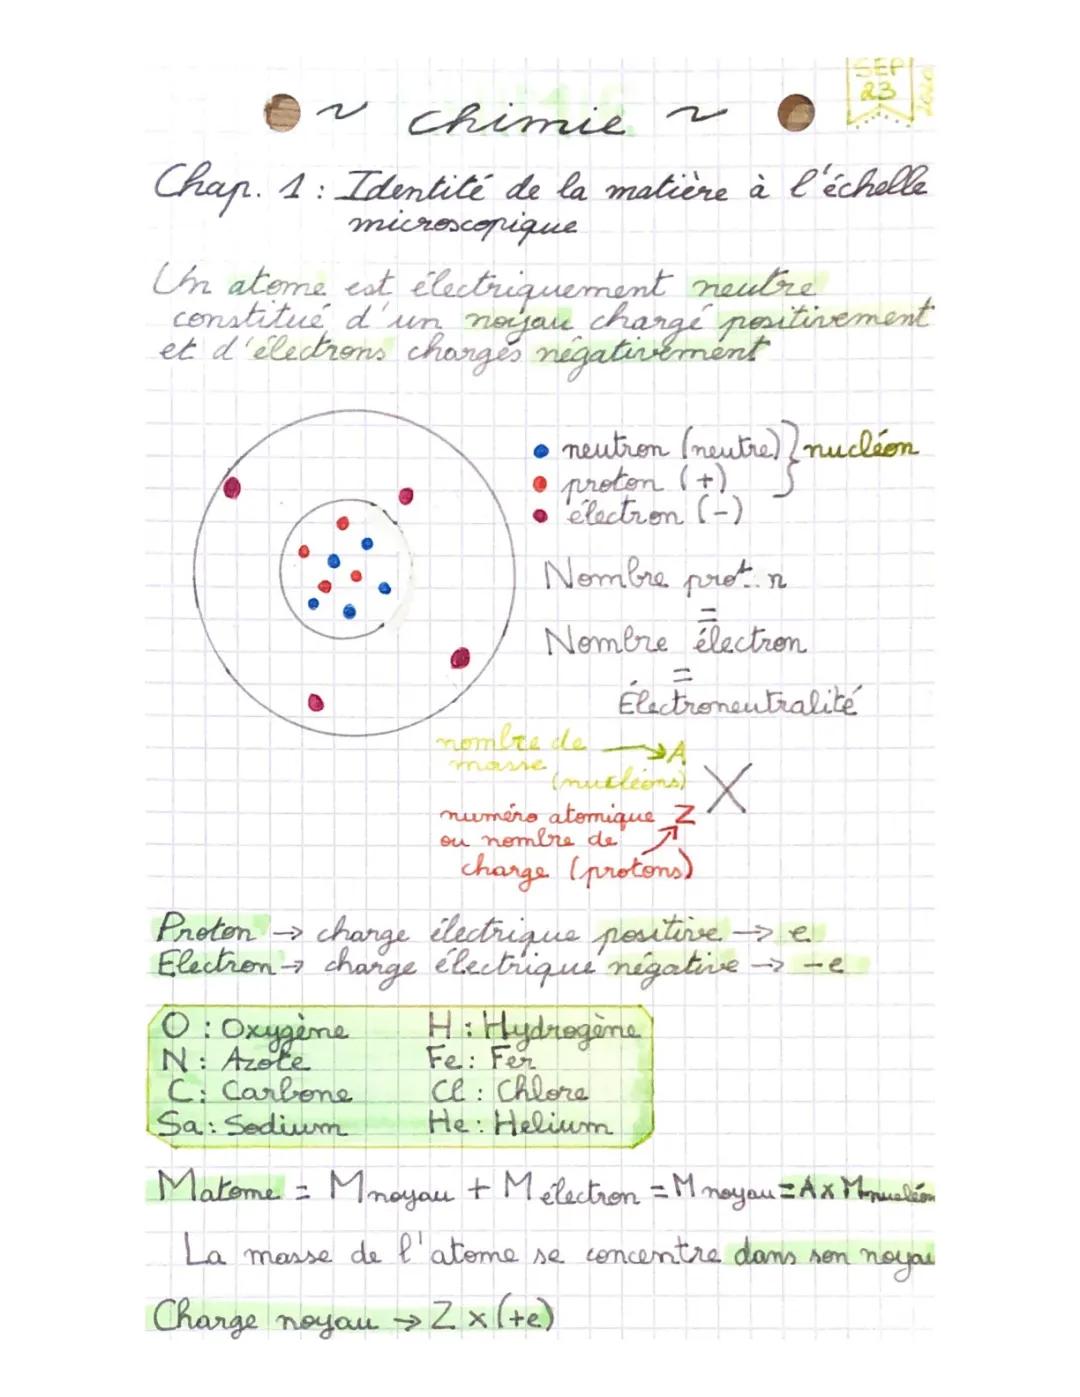 SEP
23
2020
~ chimie ~
Chap. 1 : Identité de la matière à l'échelle
microscopique
Un atome est électriquement neutre
constitué d'un noyau chargé positivement
et d'électrons chargés négativement
neutron (neutre) } nucléon
proton (+)
électron (-)
Nombre prot..n
=
Nombre électron
=
Électroneutralité
nombre de → A
masse
(nucléons) X
numéro atomique Z
ou nombre de
charge (protons)
Proton → charge électrique positive → e
Electron → charge électrique négative → -e
O : Oxygène H : Hydrogène
N : Azote Fe : Fer
C : Carbone Cl : Chlore
Sa : Sodium He : Helium
Matome = Mnoyau + Mélectron = Mnoyau = A x Mnucléon
La masse de l'atome se concentre dans son noyau
Charge noyau → Z x (+e)